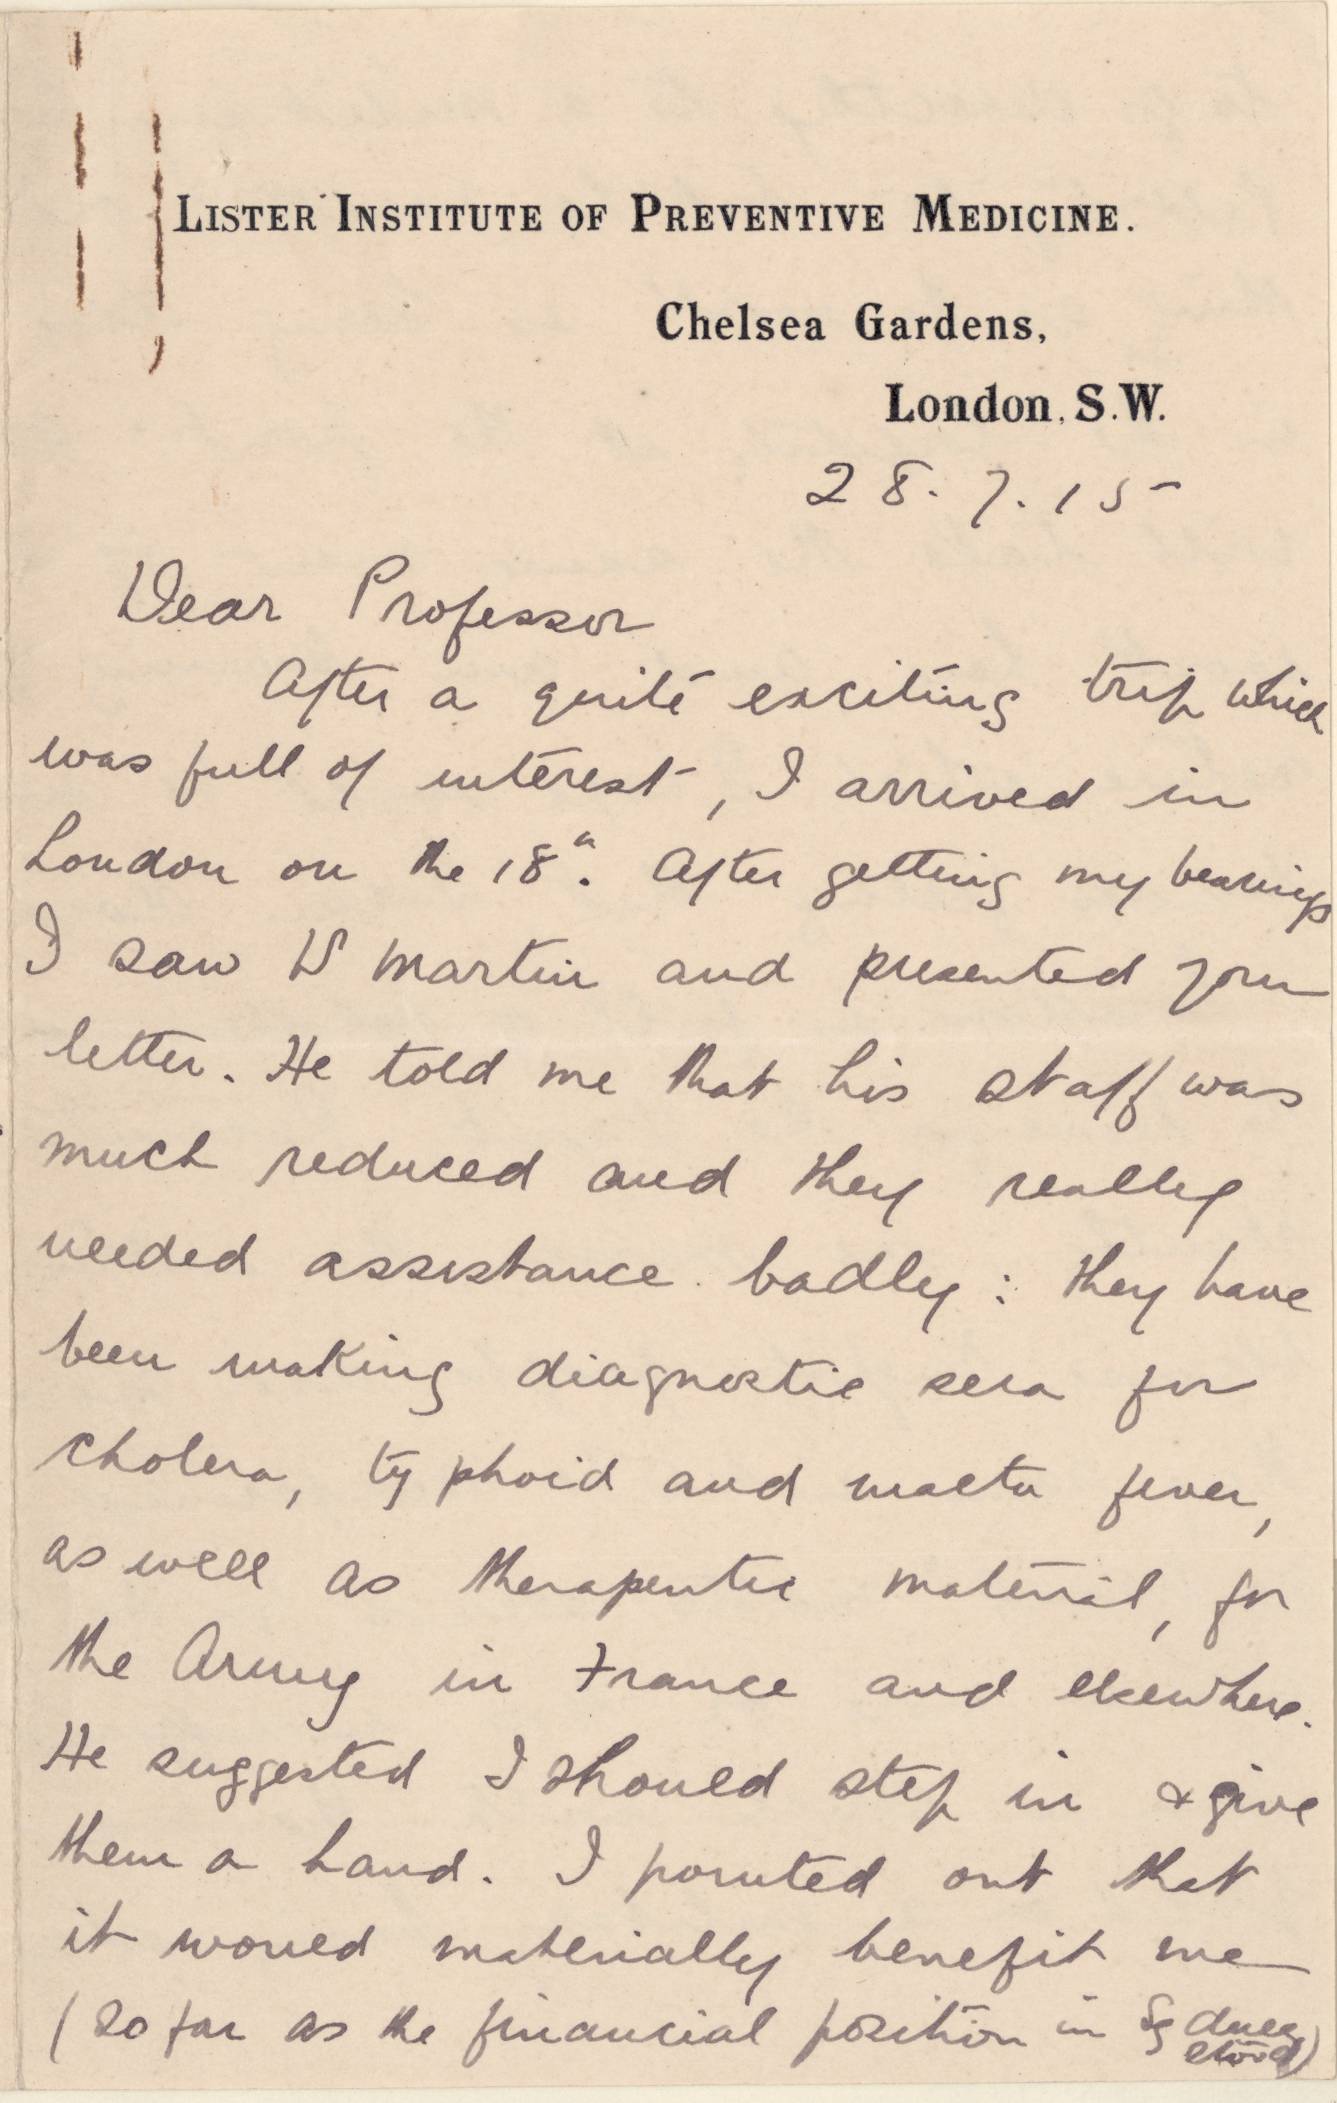 LISTER INSTITUTE OF PREVENTIVE MEDICINE.
Chelsea Gardens,
London, S.W.
28.7.15
Dear Professor
After a quite exciting trip which
was full of interest, I arrived in
London on the 18th. After getting my bearings
I saw Dr Martin and presented your
letter. He told me that his staff was
much reduced and they really
needed assistance badly: they have
been making diagnostic sera for
cholera, typhoid and malta fever,
as well as therapeutic material, for
the Army in France and elsewhere.
He suggested I should step in & give
them a hand. I pointed out that
it would materially benefit me
(so far as the financial position in Sydney
stood)